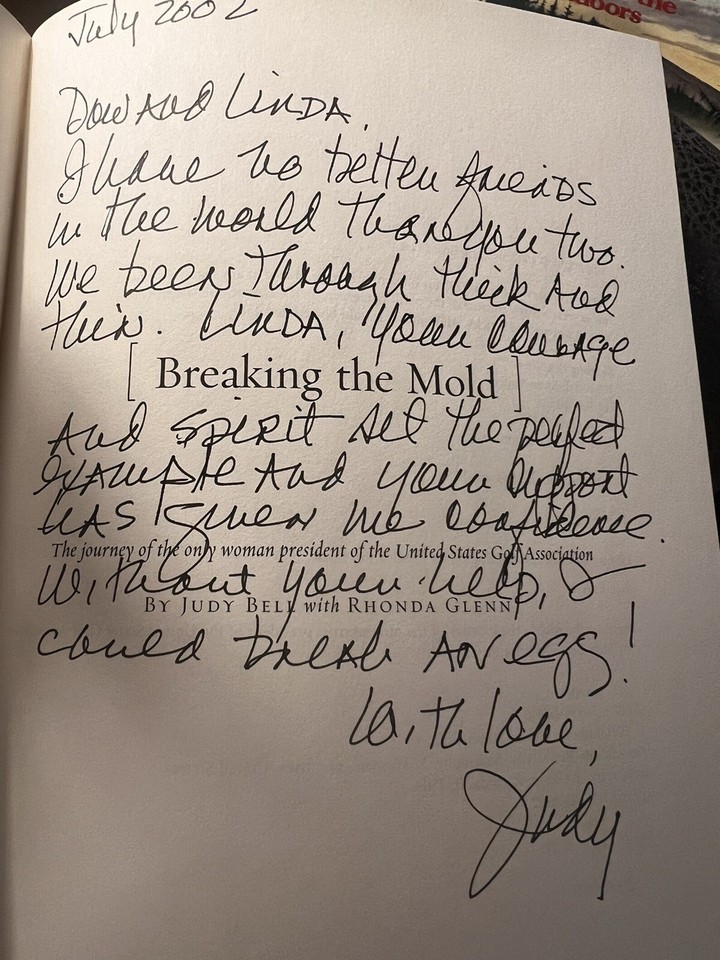 the
doors
July 2002
Dow And Linda,
I have no better friends
in the world than you two.
We been through thick And
thin. Linda, your courage
[ Breaking the Mold ]
And spirit set the perfect
example And your support
has given me confidence.
The journey of the only woman president of the United States Golf Association
Without your help, I
By Judy Bell with Rhonda Glenn
could break An egg!
With love,
Judy